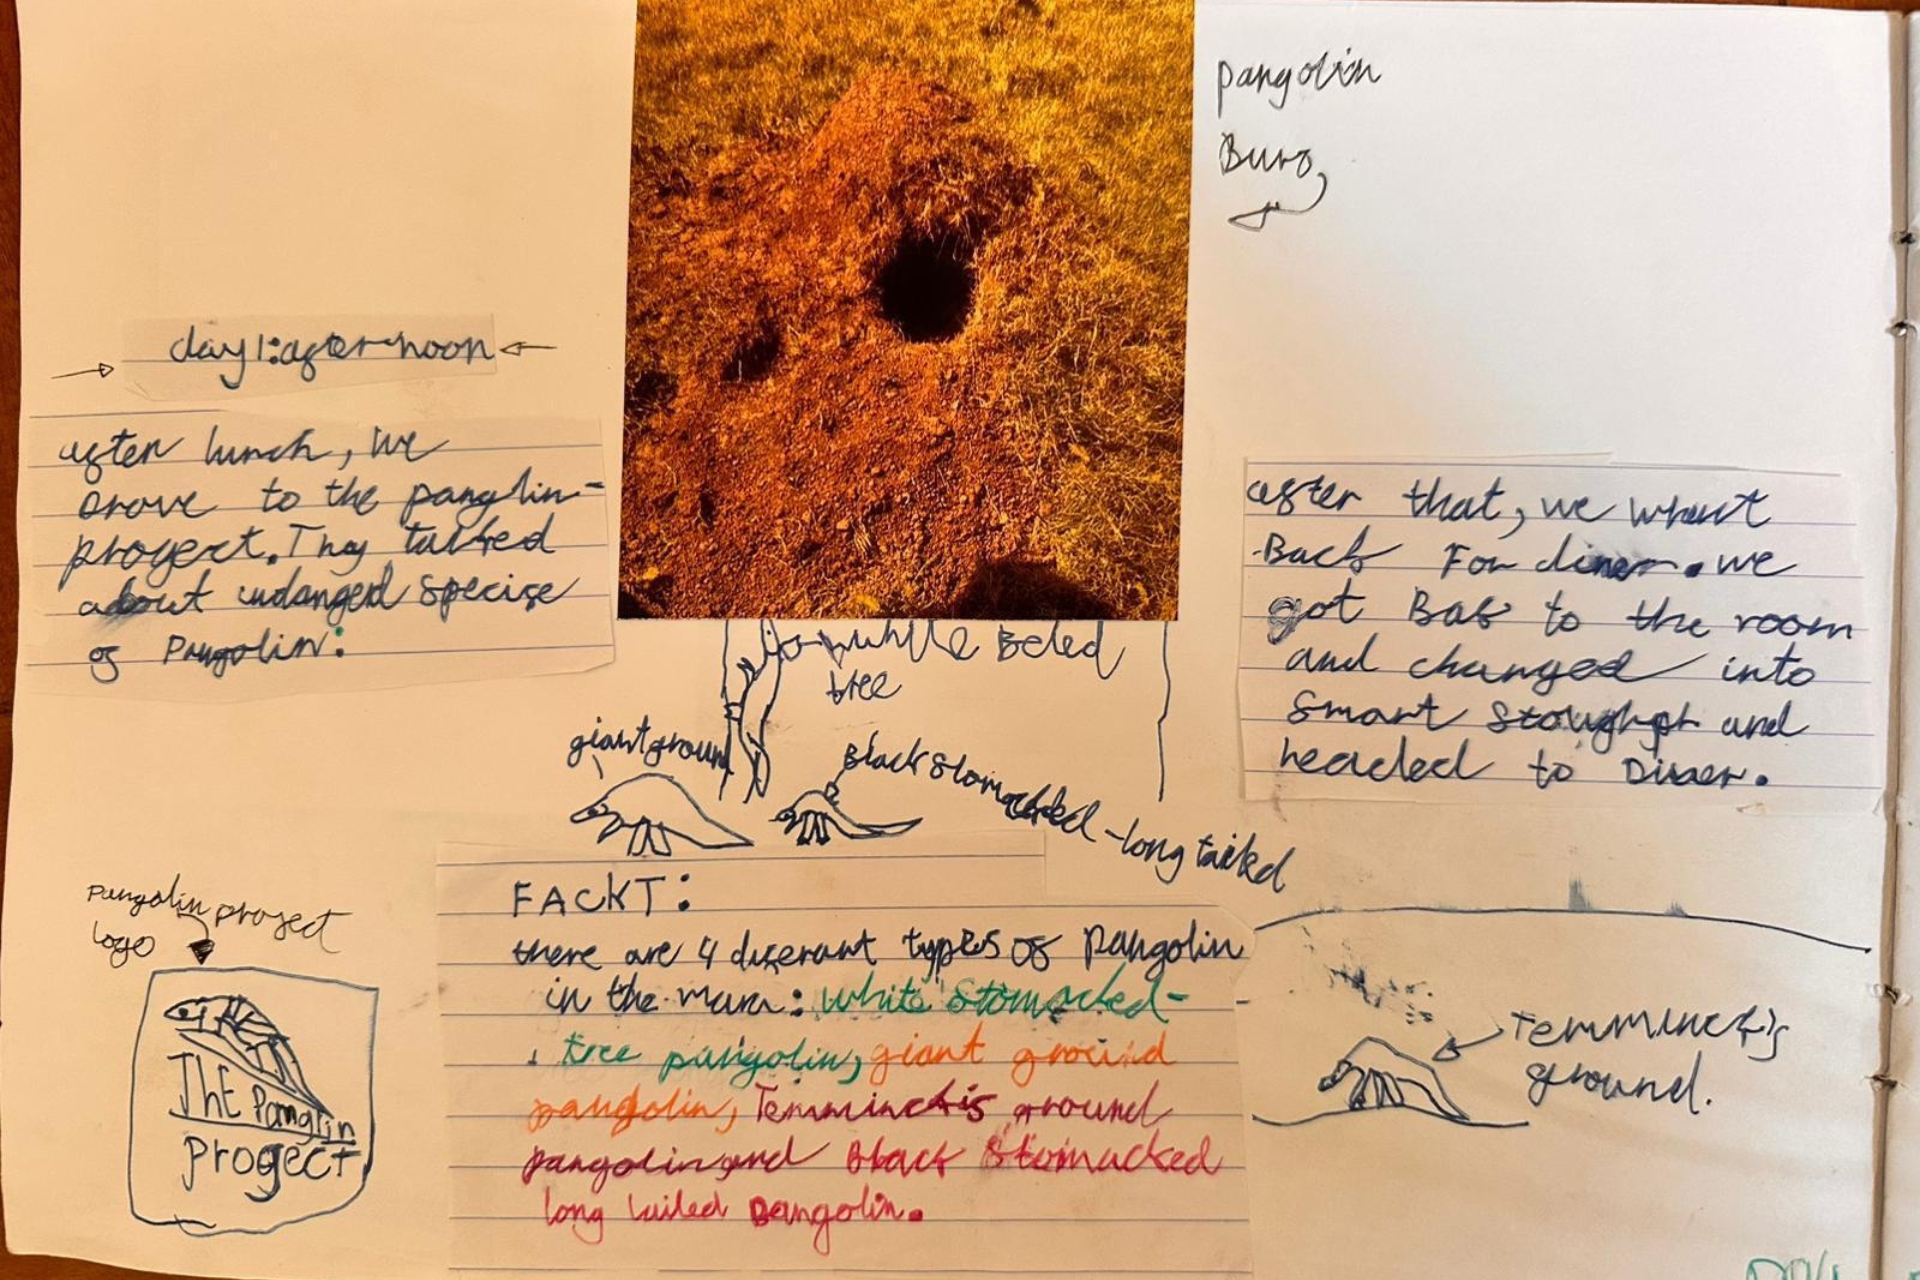 pangolin
Buro
day 1: afternoon
after lunch, we
drove to the panglin-
progect. Thay talked
about indangerd specise
of Pangolin:
white Beled
tree
giant ground
Black stomacked-long tailed
after that, we whent
Back For diner. we
got Bak to the room
and changed into
smart and
headed to Diner.
Pangolin project
logo
The Panglin
progect
FACKT:
there are 4 diferant types of pangolin
in the mara: white stomacked-
tree pangolin, giant ground
pangolin, Temminck's ground
pangolin and Black stomacked
long tailed Pangolin.
Temminck's
ground.